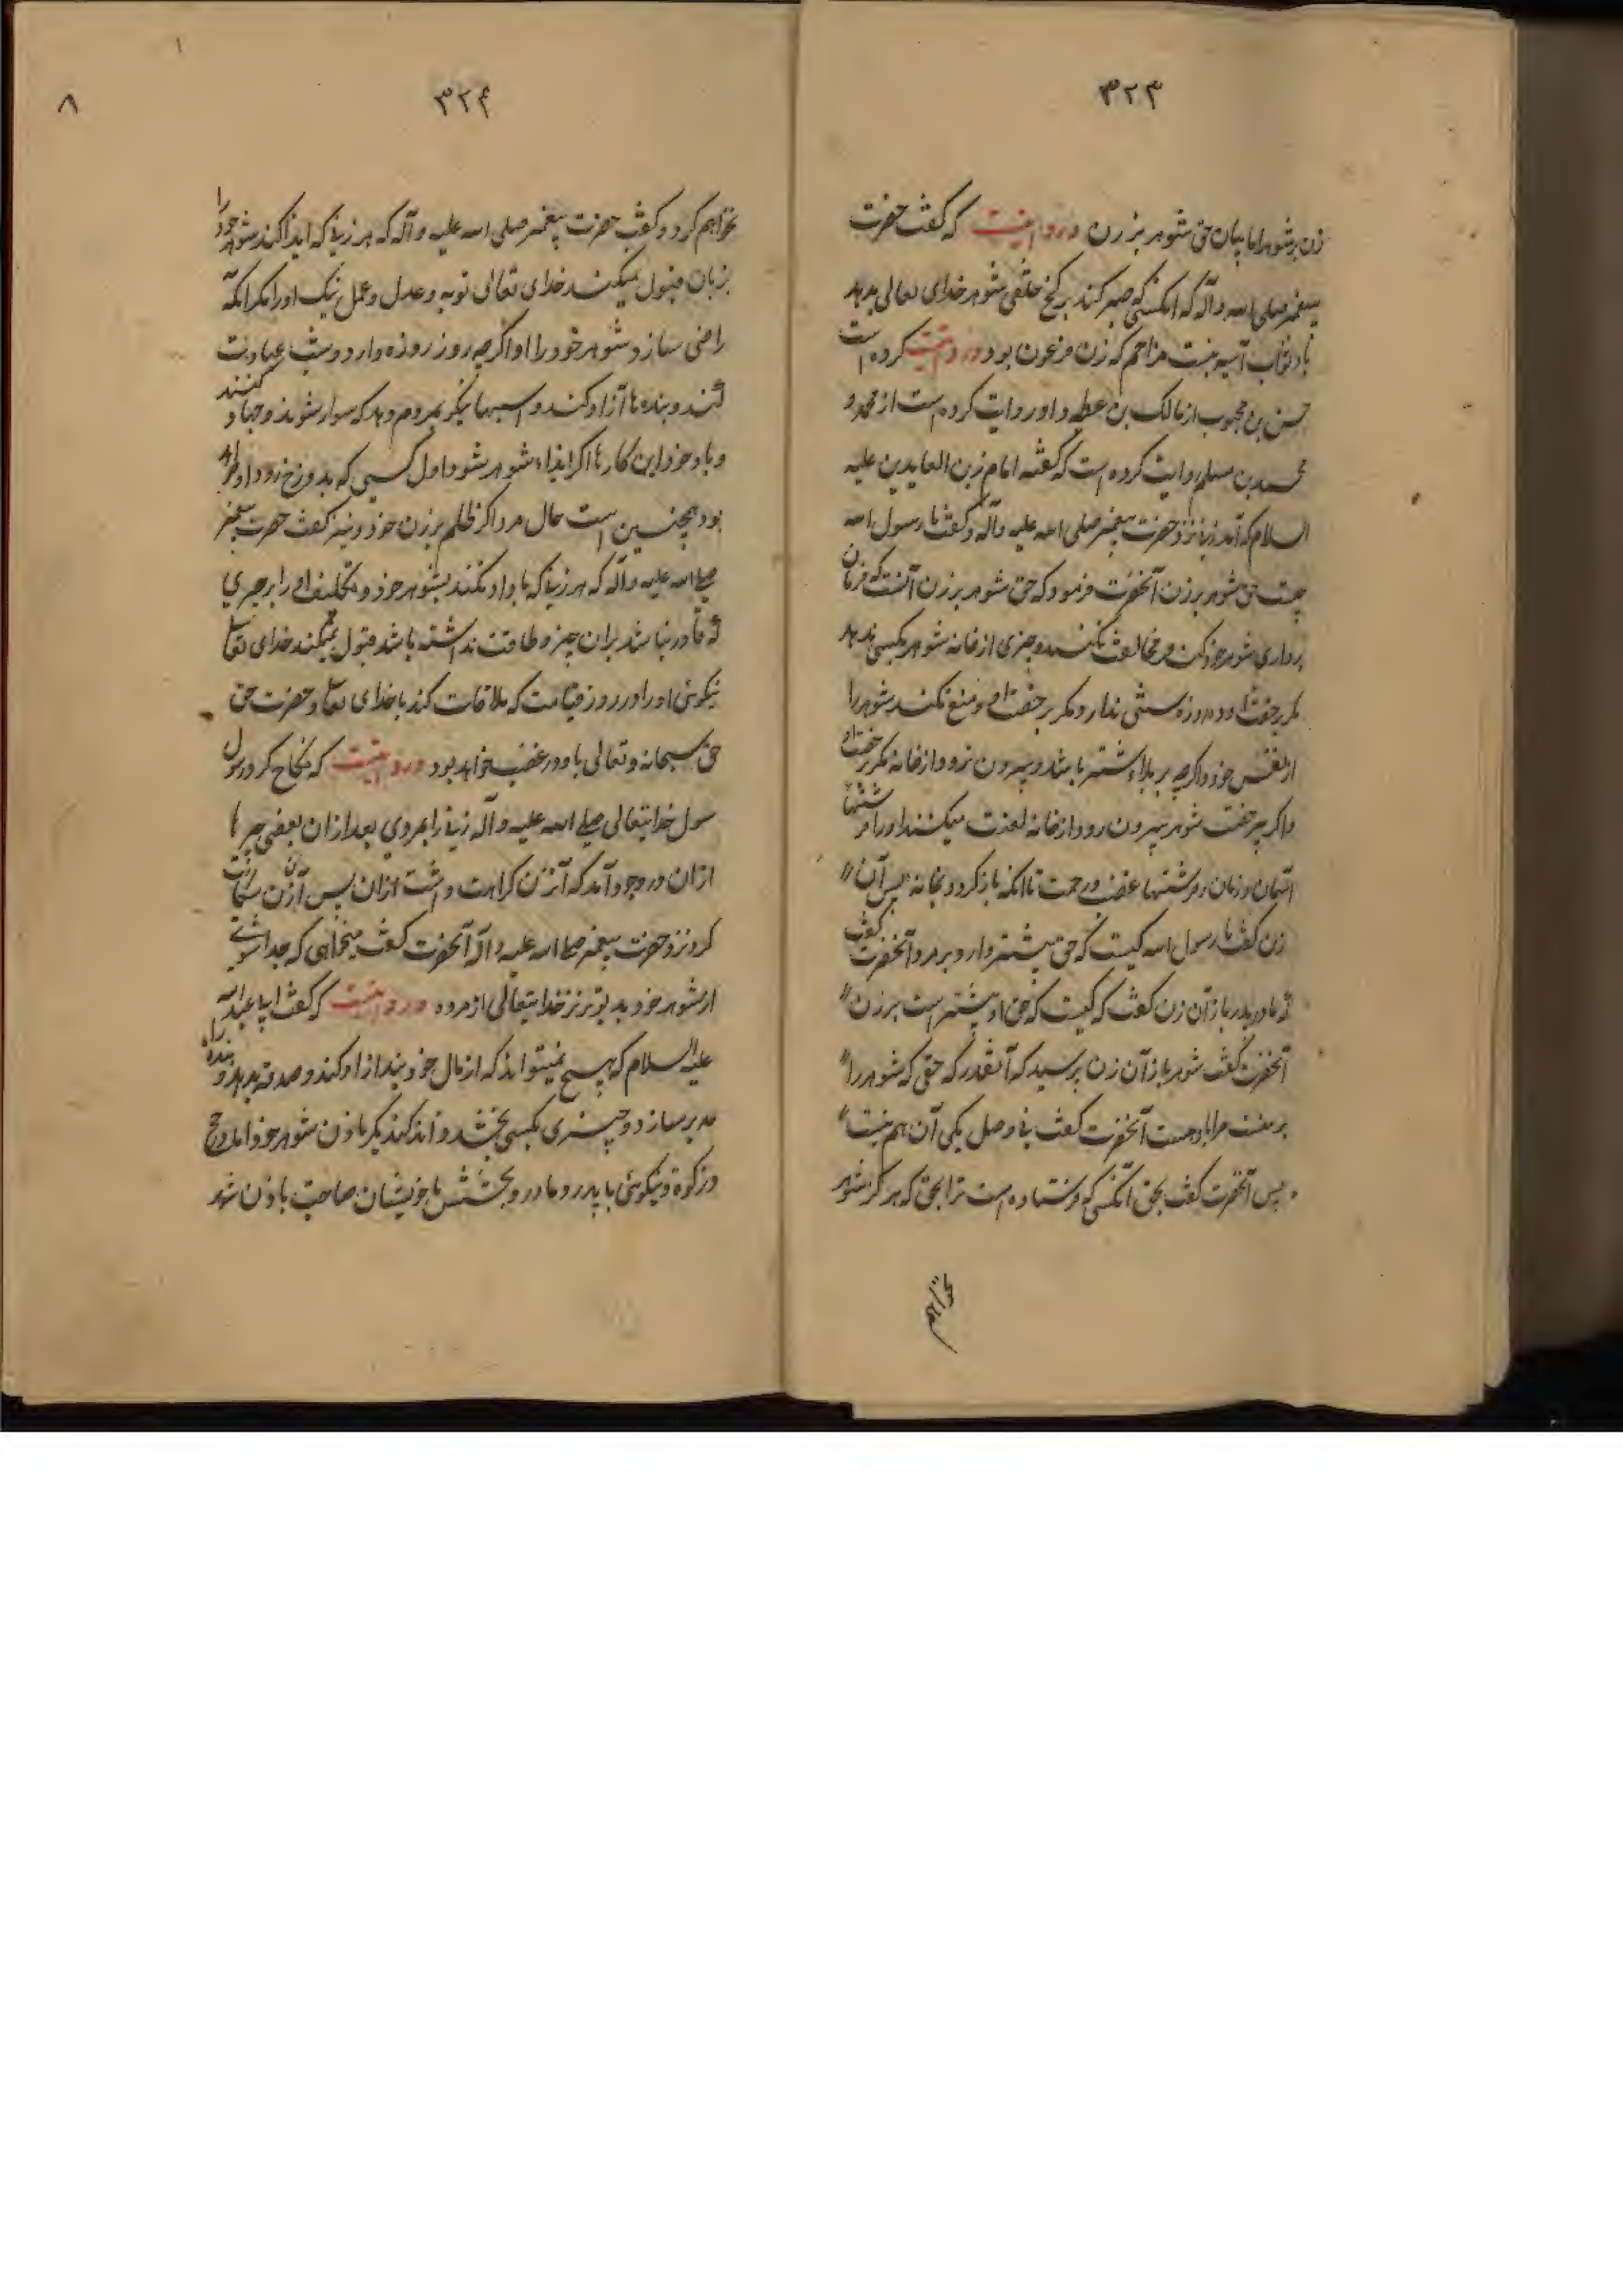 ۳۲۳
زن بر شوهر اما بیان حق شوهر بر زن در روایتست که گفت حضرت
پیغمبر صلی الله و آله که انکسی که صبر کند بر کج خلقی شوهر خدای تعالی بدهد
باو ثواب آسیه بنت مزاحم که زن فرعون بود و روایت کرده است
حسن بن محبوب از مالک بن عطیه و او روایت کرده است از محمد و
محمد بن مسلم روایت کرده است که گفته امام زین العابدین علیه
السلام که آمد زنی نزد حضرت پیغمبر صلی الله علیه و آله و گفت یا رسول الله
چیست حق شوهر بر زن آنحضرت فرمود که حق شوهر بر زن آنست که فرمان
برداری شوهر خود کند و مخالفت نکند و چیزی از خانه شوهر بکسی ندهد
مگر برخصت او و روزه سنتی ندارد مگر برخصت او و منع نکند شوهر را
از نفس خود و اگرچه بر بالای شتر باشد و بیرون نرود از خانه مگر برخصت او
و اگر بی رخصت شوهر بیرون رود از خانه لعنت میکنند او را فرشتها
آسمان و زمان و فرشتهای غضب و رحمت تا انکه باز گردد بخانه پس آن
زن گفت یا رسول الله کیست که حق بیشتر دارد بر مرد آنحضرت گفت
که مادر پدر باز آن زن گفت که کیست که حق او بیشتر است بر زن
آنحضرت گفت شوهر باز آن زن پرسید که آنقدر که حقی که شوهر را
بر منست مرا باو هست آنحضرت گفت نی و صد یکی آن هم نیست
پس آنحضرت گفت بحق آنکسی که فرستاده است ترا بحق که هرگز شوهر
نخواهم
۳۲۴
۸
نخواهم کرد و گفت حضرت پیغمبر صلی الله علیه و آله که هر زنی که ایذا کند شوهر خود را
بزبان قبول نمیکند خدای تعالی توبه و عدل و عمل نیک او را مگر انکه
راضی سازد شوهر خود را و اگرچه روز روزه دارد و شب عبادت
کند و بنده ها آزاد کند و اسبهای نیکو بمردم دهد که سوار شوند و جهاد کنند
و باوجود این کارها اگر ایذاء شوهر شود اول کسی که بدوزخ رود او خواهد
بود همچنین است حال مرد اگر ظلم بر زن خود و نیز گفت حضرت پیغمبر
صلی الله علیه و آله که هر زنی که باو مدارا نکند بشوهر خود و تکلیف او را بر چیزی
که قادر نباشد بران چیز و طاقت نداشته باشد قبول نمیکند خدای تعالی
نیکوئی او را و در روز قیامت که ملاقات کند با خدای تعالی و حضرت حق
حق سبحانه و تعالی باو در غضب خواهد بود در روایتست که نکاح کرد رسول
سول خدایتعالی صلی الله علیه و آله زنی را بمردی بعد ازان بعضی چیزها
ازان در وجود آمد که آنزن کراهت داشت ازان پس آن زن شکایت
کرد نزد حضرت پیغمبر صلی الله علیه و آله آنحضرت گفت میخواهی که جدا شوی
از شوهر خود بدتر نزد خدایتعالی از مرده در روایتست که گفت ابا عبدالله
علیه السلام که هیچ زن نمیتواند که از مال خود بنده آزاد کند و صدقه بدهد و بنده را
مدبر سازد و چیزی بکسی بخشد و نذر کند مگر باذن شوهر خود اما در حج
و زکوة و نیکوئی با پدر و مادر و بخشش با خویشان صاحب باذن شوهر